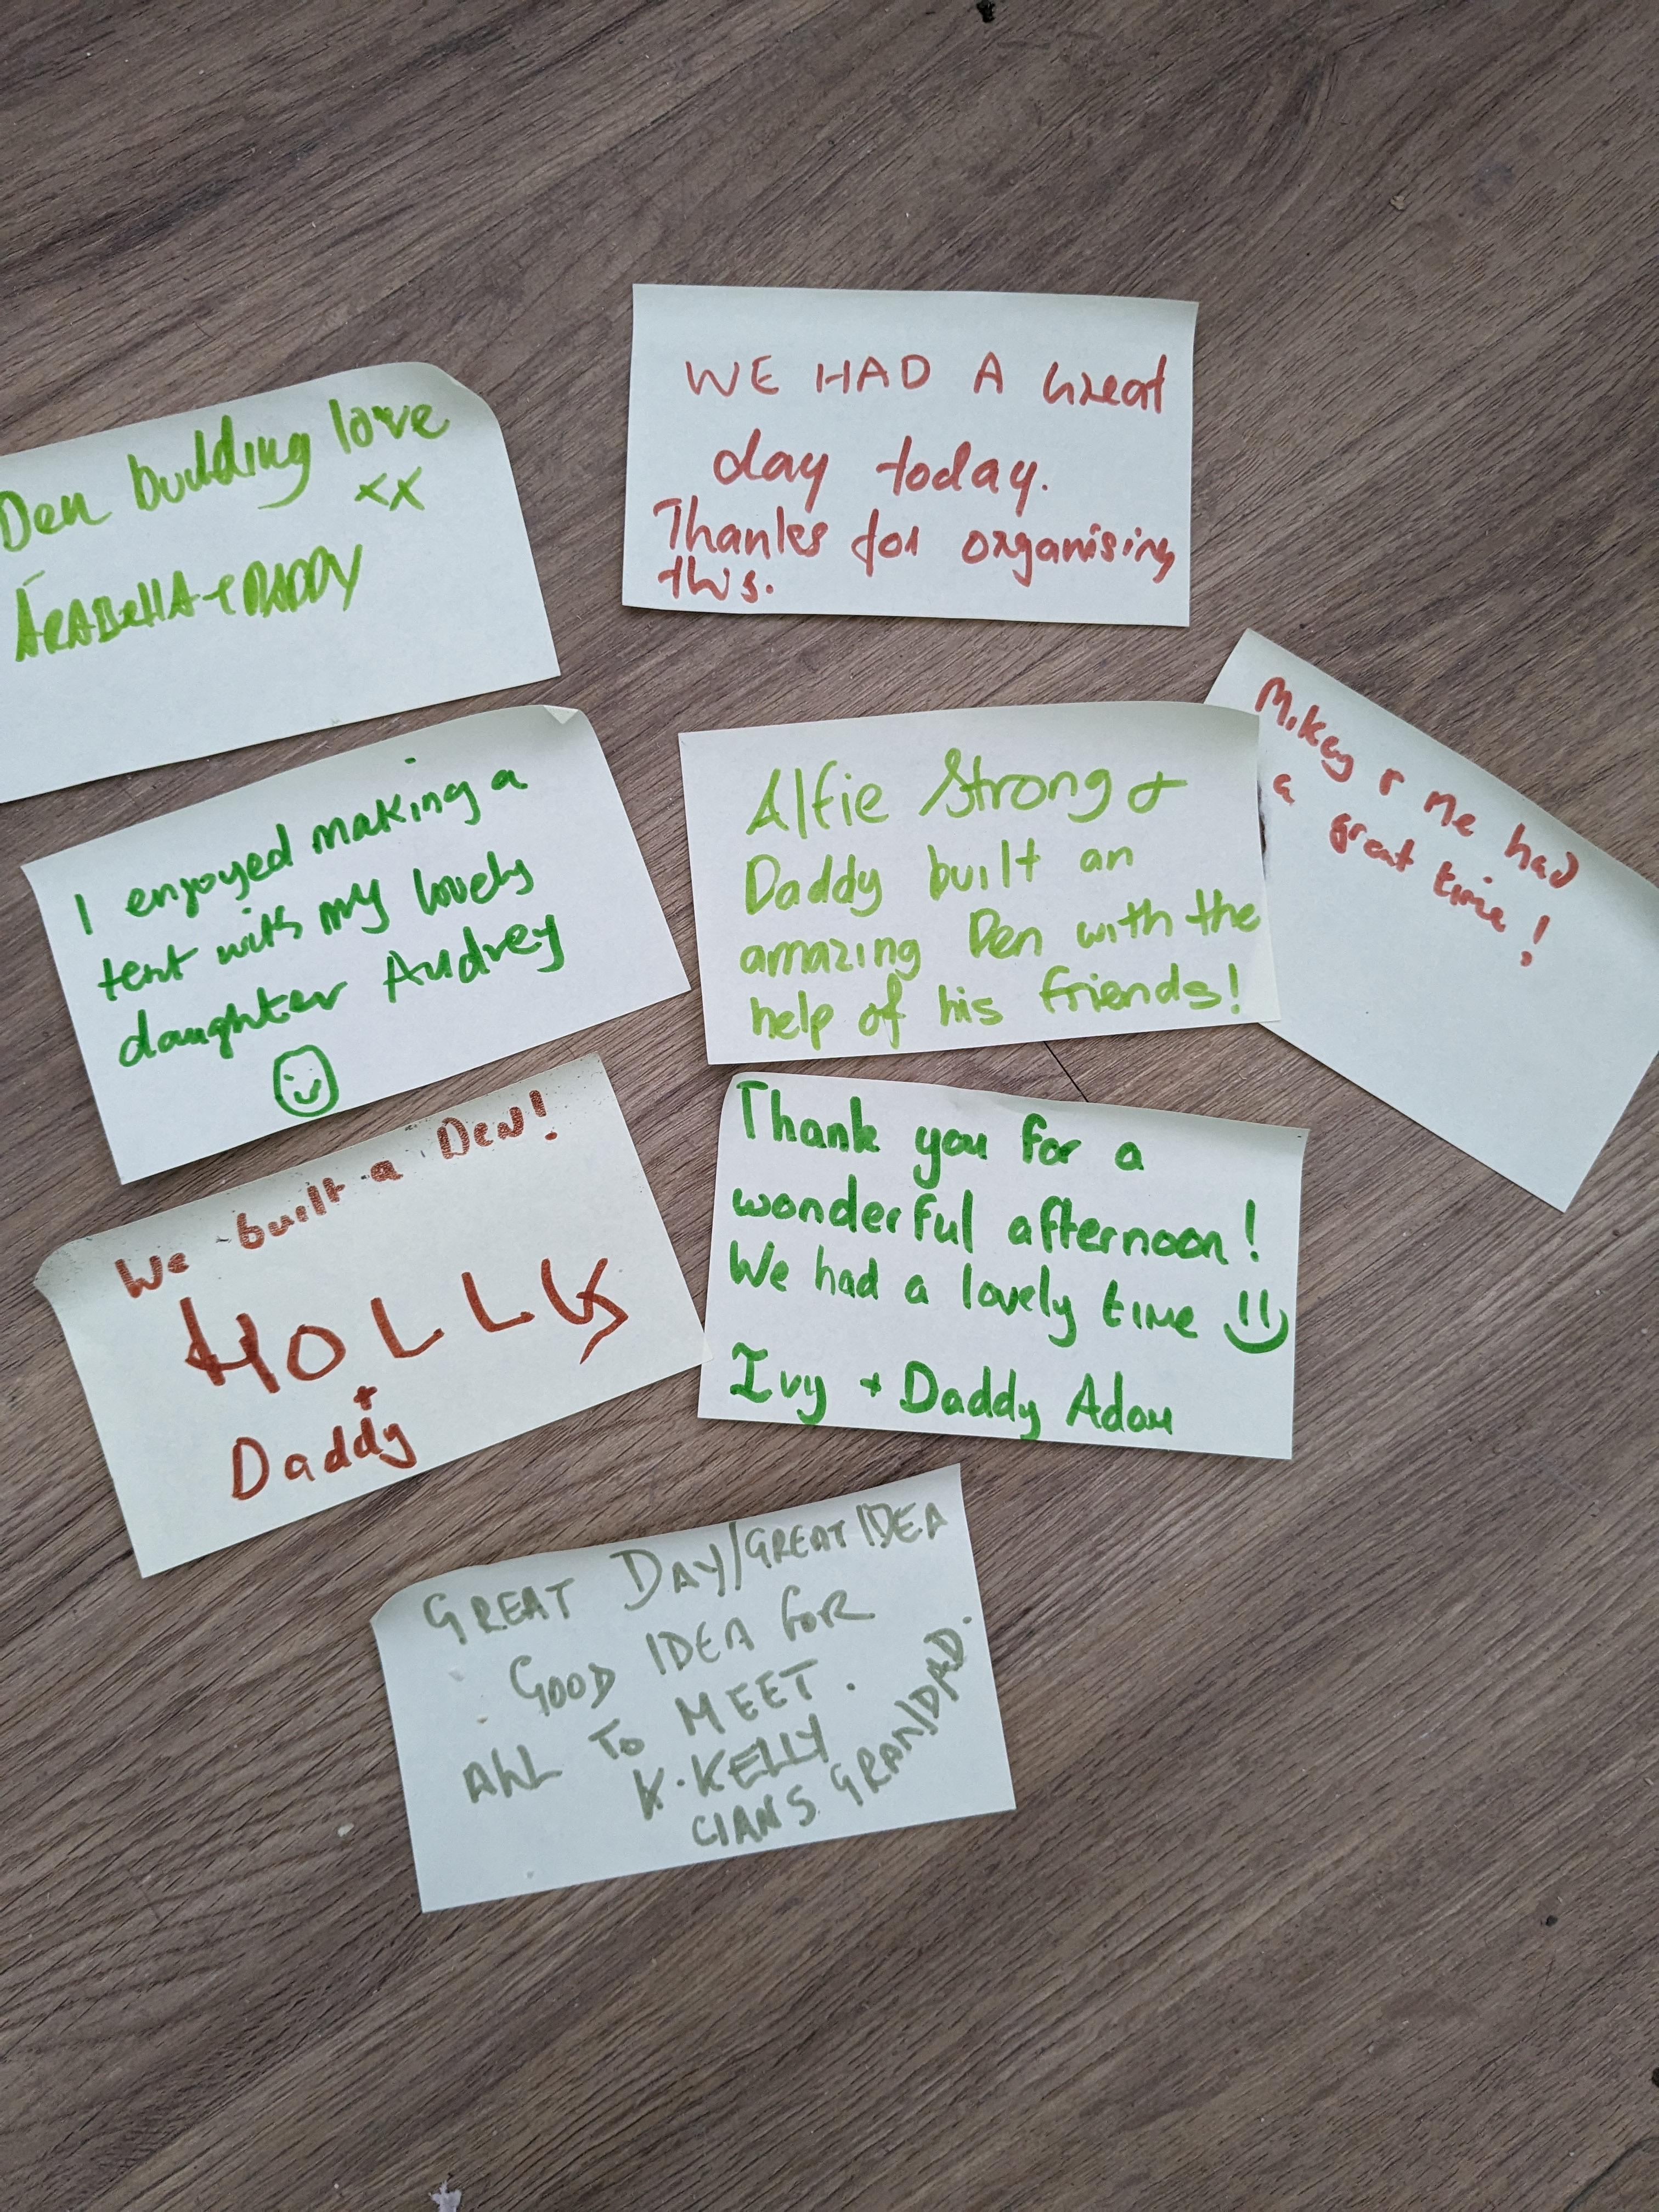 WE HAD A Great
day today.
Thanks for organising
this.
Den building love
xx
ARABELLA + DADDY
Mikey & me had
a great time!
I enjoyed making a
tent with my lovely
daughter Audrey
Alfie Strong &
Daddy built an
amazing Den with the
help of his friends!
We built a Den!
HOLLY
+
Daddy
Thank you for a
wonderful afternoon!
We had a lovely time
Ivy + Daddy Adam
GREAT DAY/GREAT IDEA
GOOD IDEA FOR
ALL TO MEET.
K.KELLY
CIANS GRANDAD.